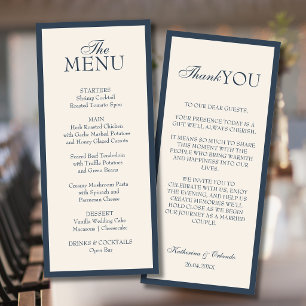 The
MENU
STARTERS
Shrimp Cocktail
Roasted Tomato Soup
MAIN
Herb Roasted Chicken
with Garlic Mashed Potatoes
and Honey Glazed Carrots
Seared Beef Tenderloin
with Truffle Mashed Potatoes
and Green Beans
Creamy Mushroom Pasta
with Spinach and
Parmesan Cheese
DESSERT
Vanilla Wedding Cake
Macarons | Cheesecake
DRINKS & COCKTAILS
Open Bar
Thank YOU
TO OUR DEAR GUESTS,
YOUR PRESENCE TODAY IS A
GIFT WE'LL ALWAYS CHERISH.
IT MEANS SO MUCH TO SHARE
THIS MOMENT WITH THE
PEOPLE WHO BRING WARMTH
AND HAPPINESS INTO OUR
LIVES.
WE INVITE YOU TO
CELEBRATE WITH US, ENJOY
THE EVENING, AND HELP US
CREATE MEMORIES WE'LL
HOLD CLOSE AS WE BEGIN
OUR JOURNEY AS A MARRIED
COUPLE.
Katherina & Orlando
26.04.20XX